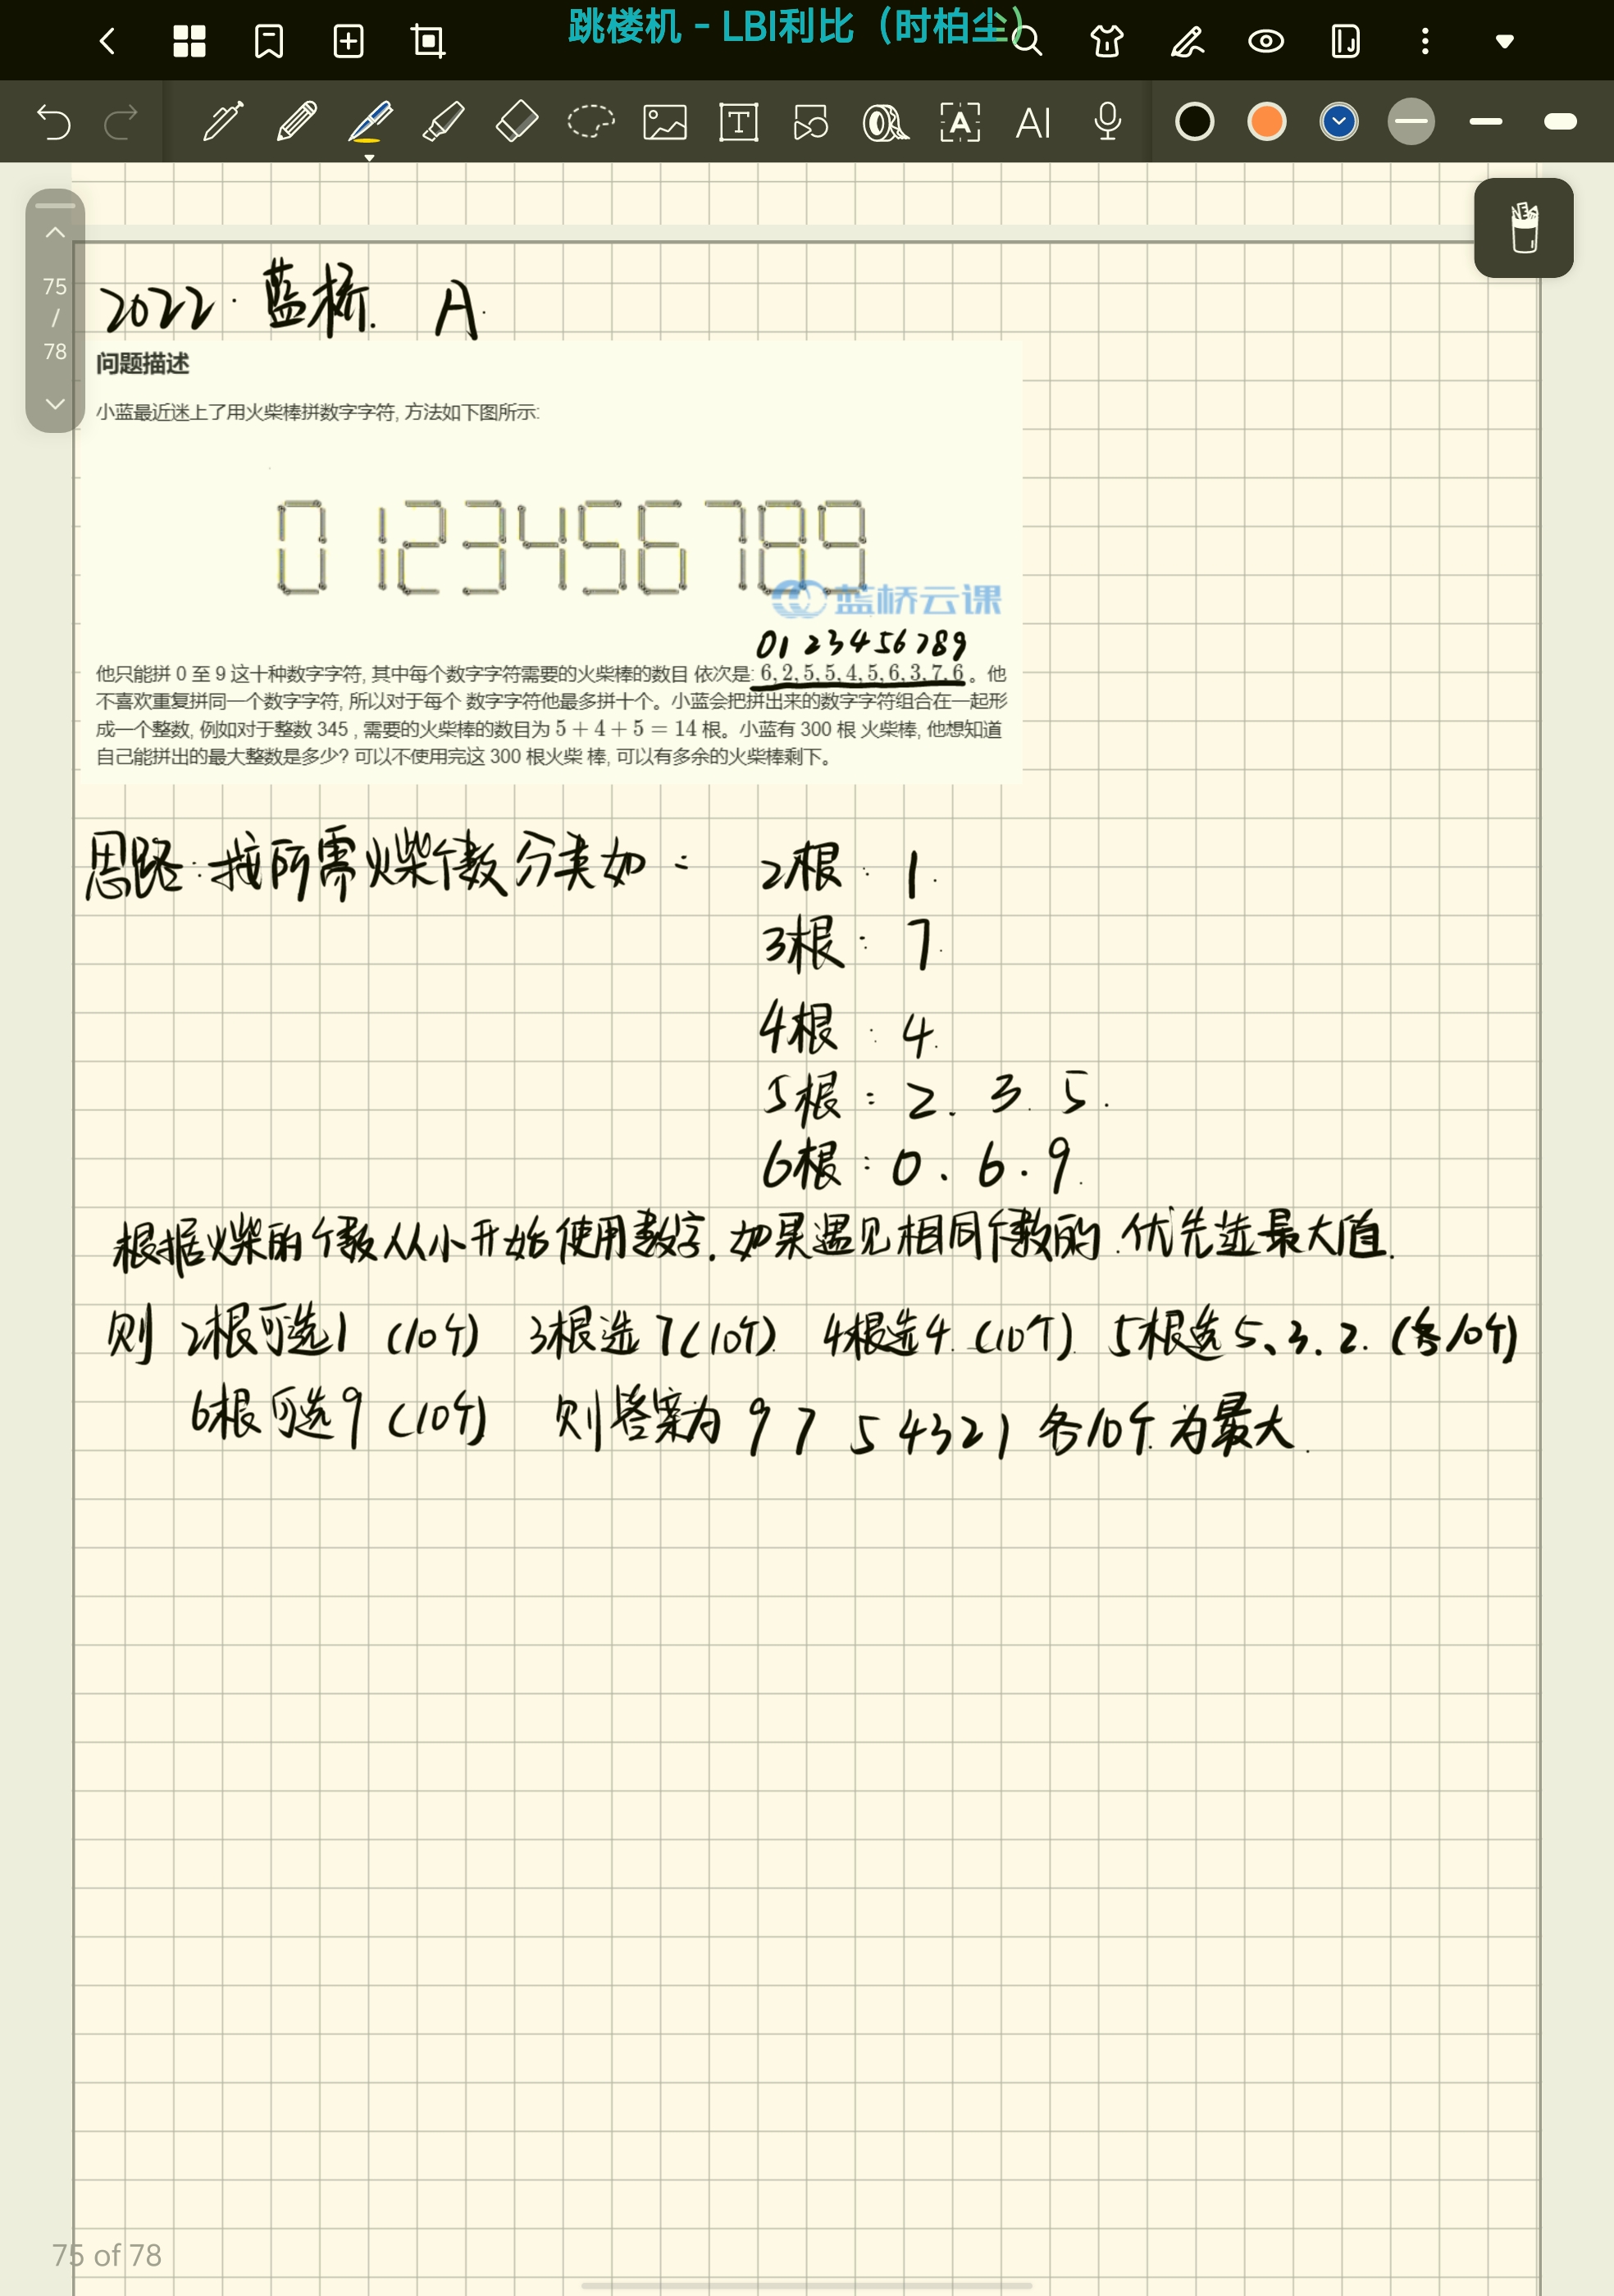 跳楼机 - LBI利比（时柏尘）
T
A
AI
75
/
78
2022. 蓝桥. A.
问题描述
小蓝最近迷上了用火柴棒拼数字字符, 方法如下图所示:
0 1 2 3 4 5 6 7 8 9
蓝桥云课
0 1 2 3 4 5 6 7 8 9
他只能拼 0 至 9 这十种数字字符, 其中每个数字字符需要的火柴棒的数目 依次是: 6,2,5,5,4,5,6,3,7,6 。他
不喜欢重复拼同一个数字字符, 所以对于每个 数字字符他最多拼十个。小蓝会把拼出来的数字字符组合在一起形
成一个整数, 例如对于整数 345 , 需要的火柴棒的数目为 5 + 4 + 5 = 14 根。小蓝有 300 根 火柴棒, 他想知道
自己能拼出的最大整数是多少? 可以不使用完这 300 根火柴 棒, 可以有多余的火柴棒剩下。
思路: 按所需火柴个数分类如: 2根: 1.
3根: 7.
4根: 4.
5根: 2. 3. 5.
6根: 0. 6. 9.
根据火柴的个数从小开始使用数字. 如果遇见相同个数的. 优先选最大值.
则 2根可选1 (10个) 3根选7(10个) 4根选4. (10个). 5根选5、3. 2. (各10个)
6根可选9 (10个) 则答案为 9 7 5 4 3 2 1 各10个 为最大.
75 of 78